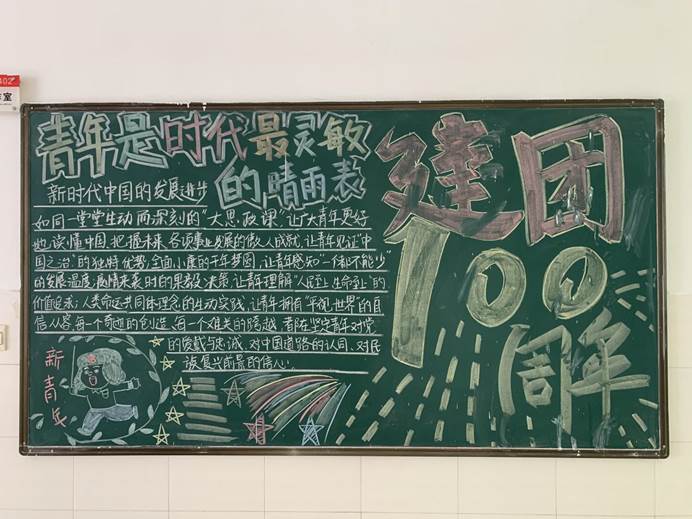 402
室
青年是时代最灵敏
的晴雨表
新时代中国的发展进步
如同一堂堂生动而深刻的“大思政课”让广大青年更好
地读懂中国,把握未来,各项事业发展的傲人成就,让青年见证“中
国之治”的独特优势;全面小康的千年梦圆,让青年感知“一个都不能少”
的发展温度,疫情来袭时的果敢决策,让青年理解“人民至上,生命至上”的
价值追求;人类命运共同体理念的生动实践,让青年拥有“平视”世界的自
信从容,每一个奇迹的创造,每一个难关的跨越,都在坚定青年对党
的爱戴与忠诚、对中国道路的认同、对民
族复兴前景的信心。
新青年
建团
100
周年